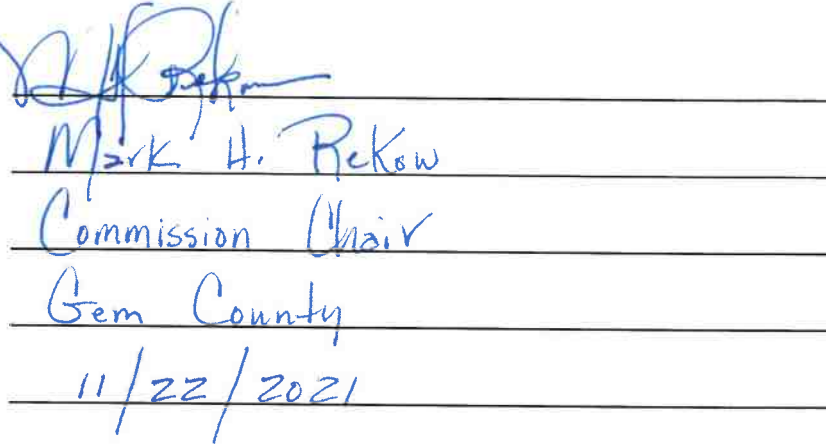 Mark H. Rekow
Commission Chair
Gem County
11/22/2021